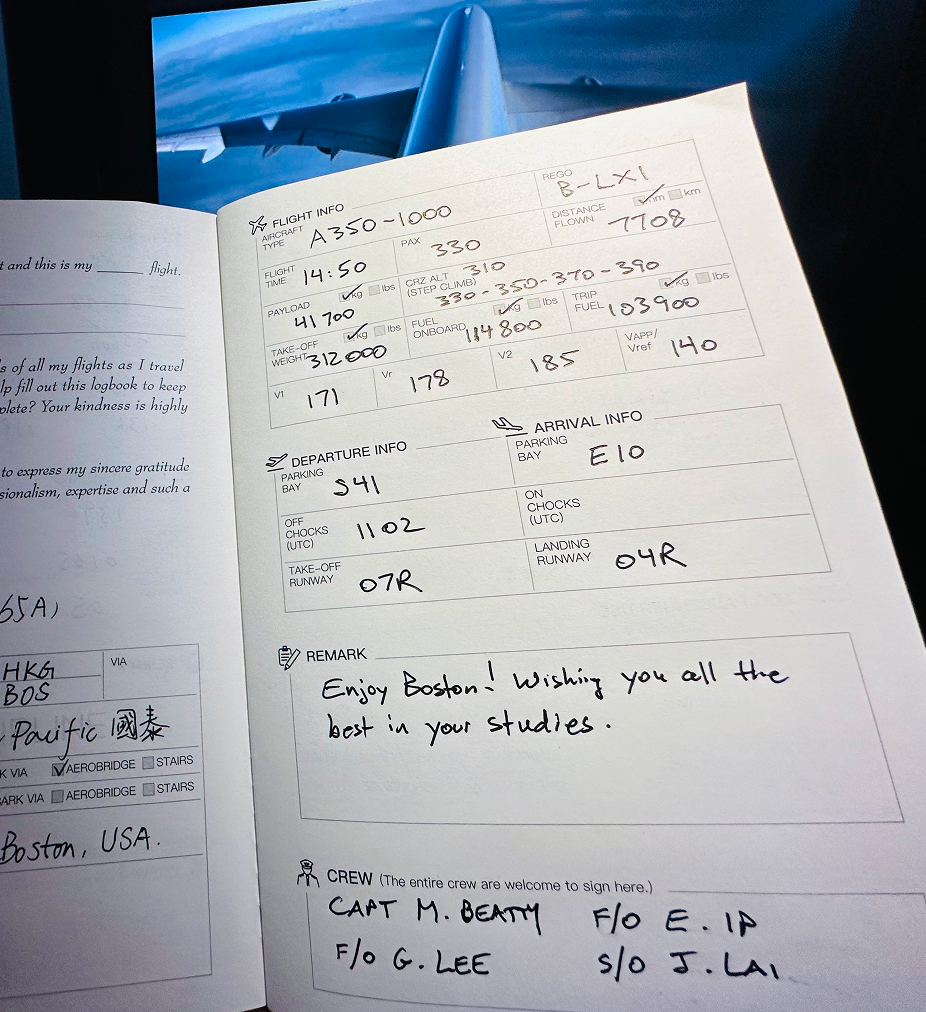 t and this is my ______ flight.
s of all my flights as I travel
lp fill out this logbook to keep
plete? Your kindness is highly
to express my sincere gratitude
sionalism, expertise and such a
65A)
HKG
VIA
BOS
Pacific 國泰
K VIA AEROBRIDGE STAIRS
ARK VIA AEROBRIDGE STAIRS
Boston, USA.
FLIGHT INFO
AIRCRAFT TYPE A350-1000
REGO B-LXI
FLIGHT TIME 14:50
PAX 330
DISTANCE FLOWN nm km 7708
PAYLOAD kg lbs 41700
CRZ ALT (STEP CLIMB) 310
330-350-370-390
TAKE-OFF WEIGHT kg lbs 312000
FUEL ONBOARD kg lbs 114800
TRIP FUEL kg lbs 103900
V1 171
Vr 178
V2 185
VAPP/Vref 140
DEPARTURE INFO
PARKING BAY S41
OFF CHOCKS (UTC) 1102
TAKE-OFF RUNWAY 07R
ARRIVAL INFO
PARKING BAY E10
ON CHOCKS (UTC)
LANDING RUNWAY 04R
REMARK
Enjoy Boston! Wishing you all the
best in your studies.
CREW (The entire crew are welcome to sign here.)
CAPT M. BEATTY F/O E. IP
F/O G. LEE S/O J. LAI